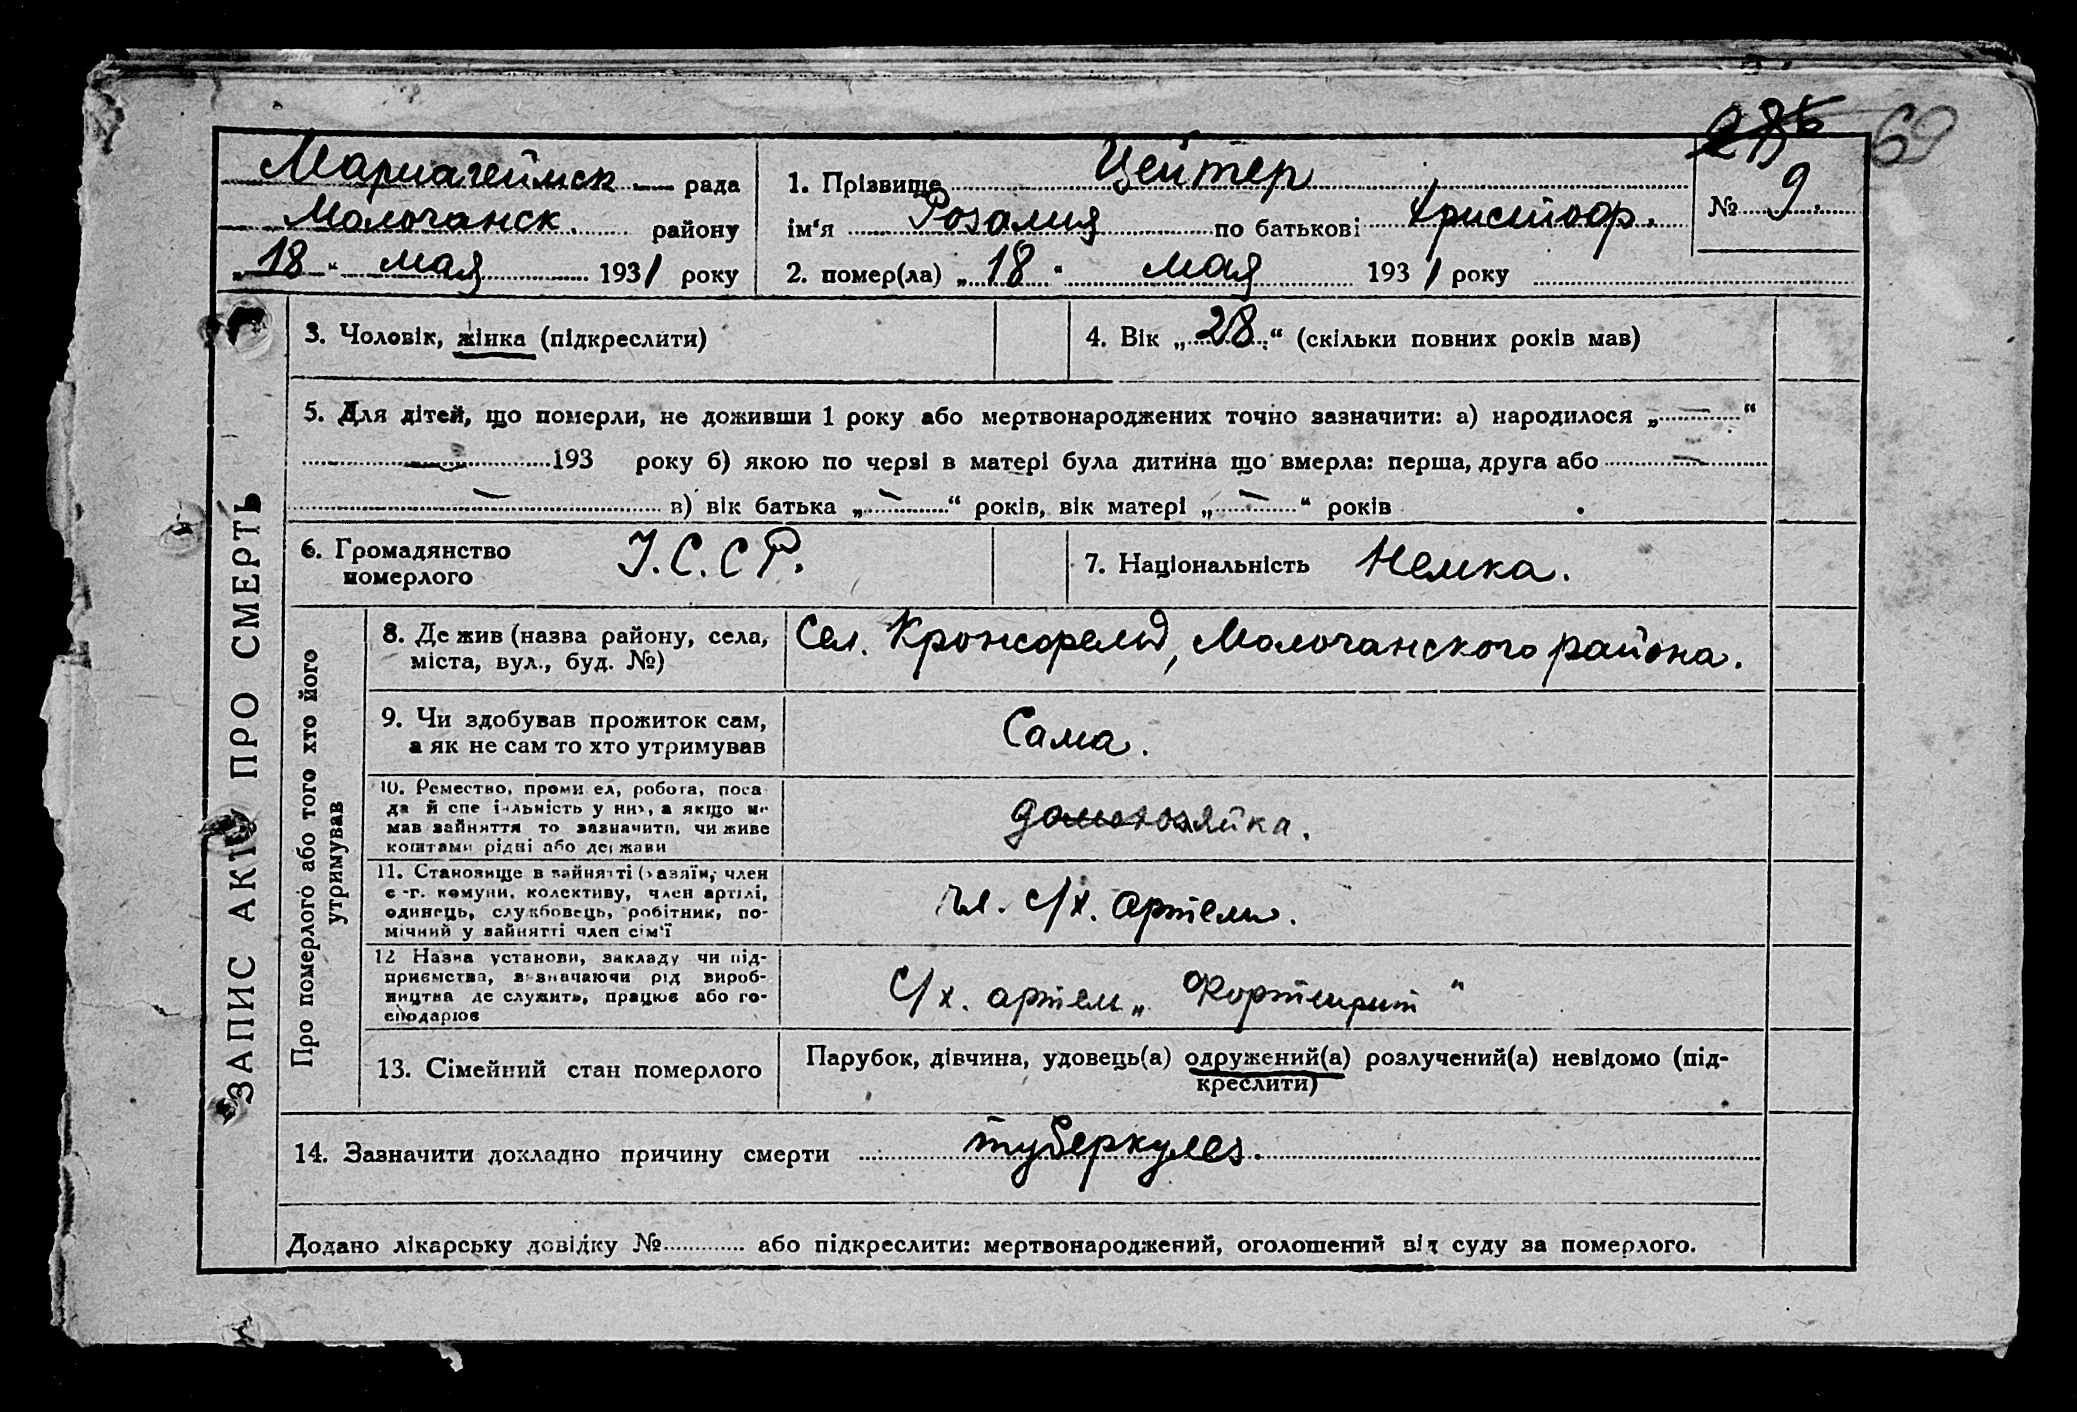 286 69
Мариагеймск рада
Молочанск. району
„18“ мая 1931 року
1. Прізвище Цейтер
ім‘я Розалия по батькові Христоф.
2. помер(ла) „18“ мая 1931 року
№ 9.
ЗАПИС АКТУ ПРО СМЕРТЬ
3. Чоловік, жінка (підкреслити)
4. Вік „28“ (скільки повних років мав)
5. Для дітей, що померли, не доживши 1 року або мертвонароджених точно зазначити: а) народилося „—“
— 193 року б) якою по черзі в матері була дитина що вмерла: перша, друга або —
— в) вік батька „—“ років, вік матері „—“ років
6. Громадянство
померлого
У.С.С.Р.
7. Національність Немка.
Про померлого або того хто його
утримував
8. Де жив (назва району, села,
міста, вул., буд. №)
Сел. Кронсфельд, Молочанского района.
9. Чи здобував прожиток сам,
а як не сам то хто утримував
Сама.
10. Ремество, промисел, робота, поса
да й спеціяльність у них, а якщо не
мав зайняття то зазначити, чи живе
коштами рідні або держави
домохозяйка.
11. Становище в зайнятті (хазяїн, член
с.-г. комуни, колективу, член артілі,
одинець, службовець, робітник, по-
мічний у зайнятті член сім‘ї
чл. с/х. артели.
12 Назва установи, закладу чи під-
приємства, зазначаючи рід вироб-
ництва де служить, працює або го-
сподарює
С/х. артель „Фортшрит“
13. Сімейний стан померлого
Парубок, дівчина, удовець(а) одружений(а) розлучений(а) невідомо (під-
креслити)
14. Зазначити докладно причину смерти туберкулез.
Додано лікарську довідку № або підкреслити: мертвонароджений, оголошений від суду за померлого.